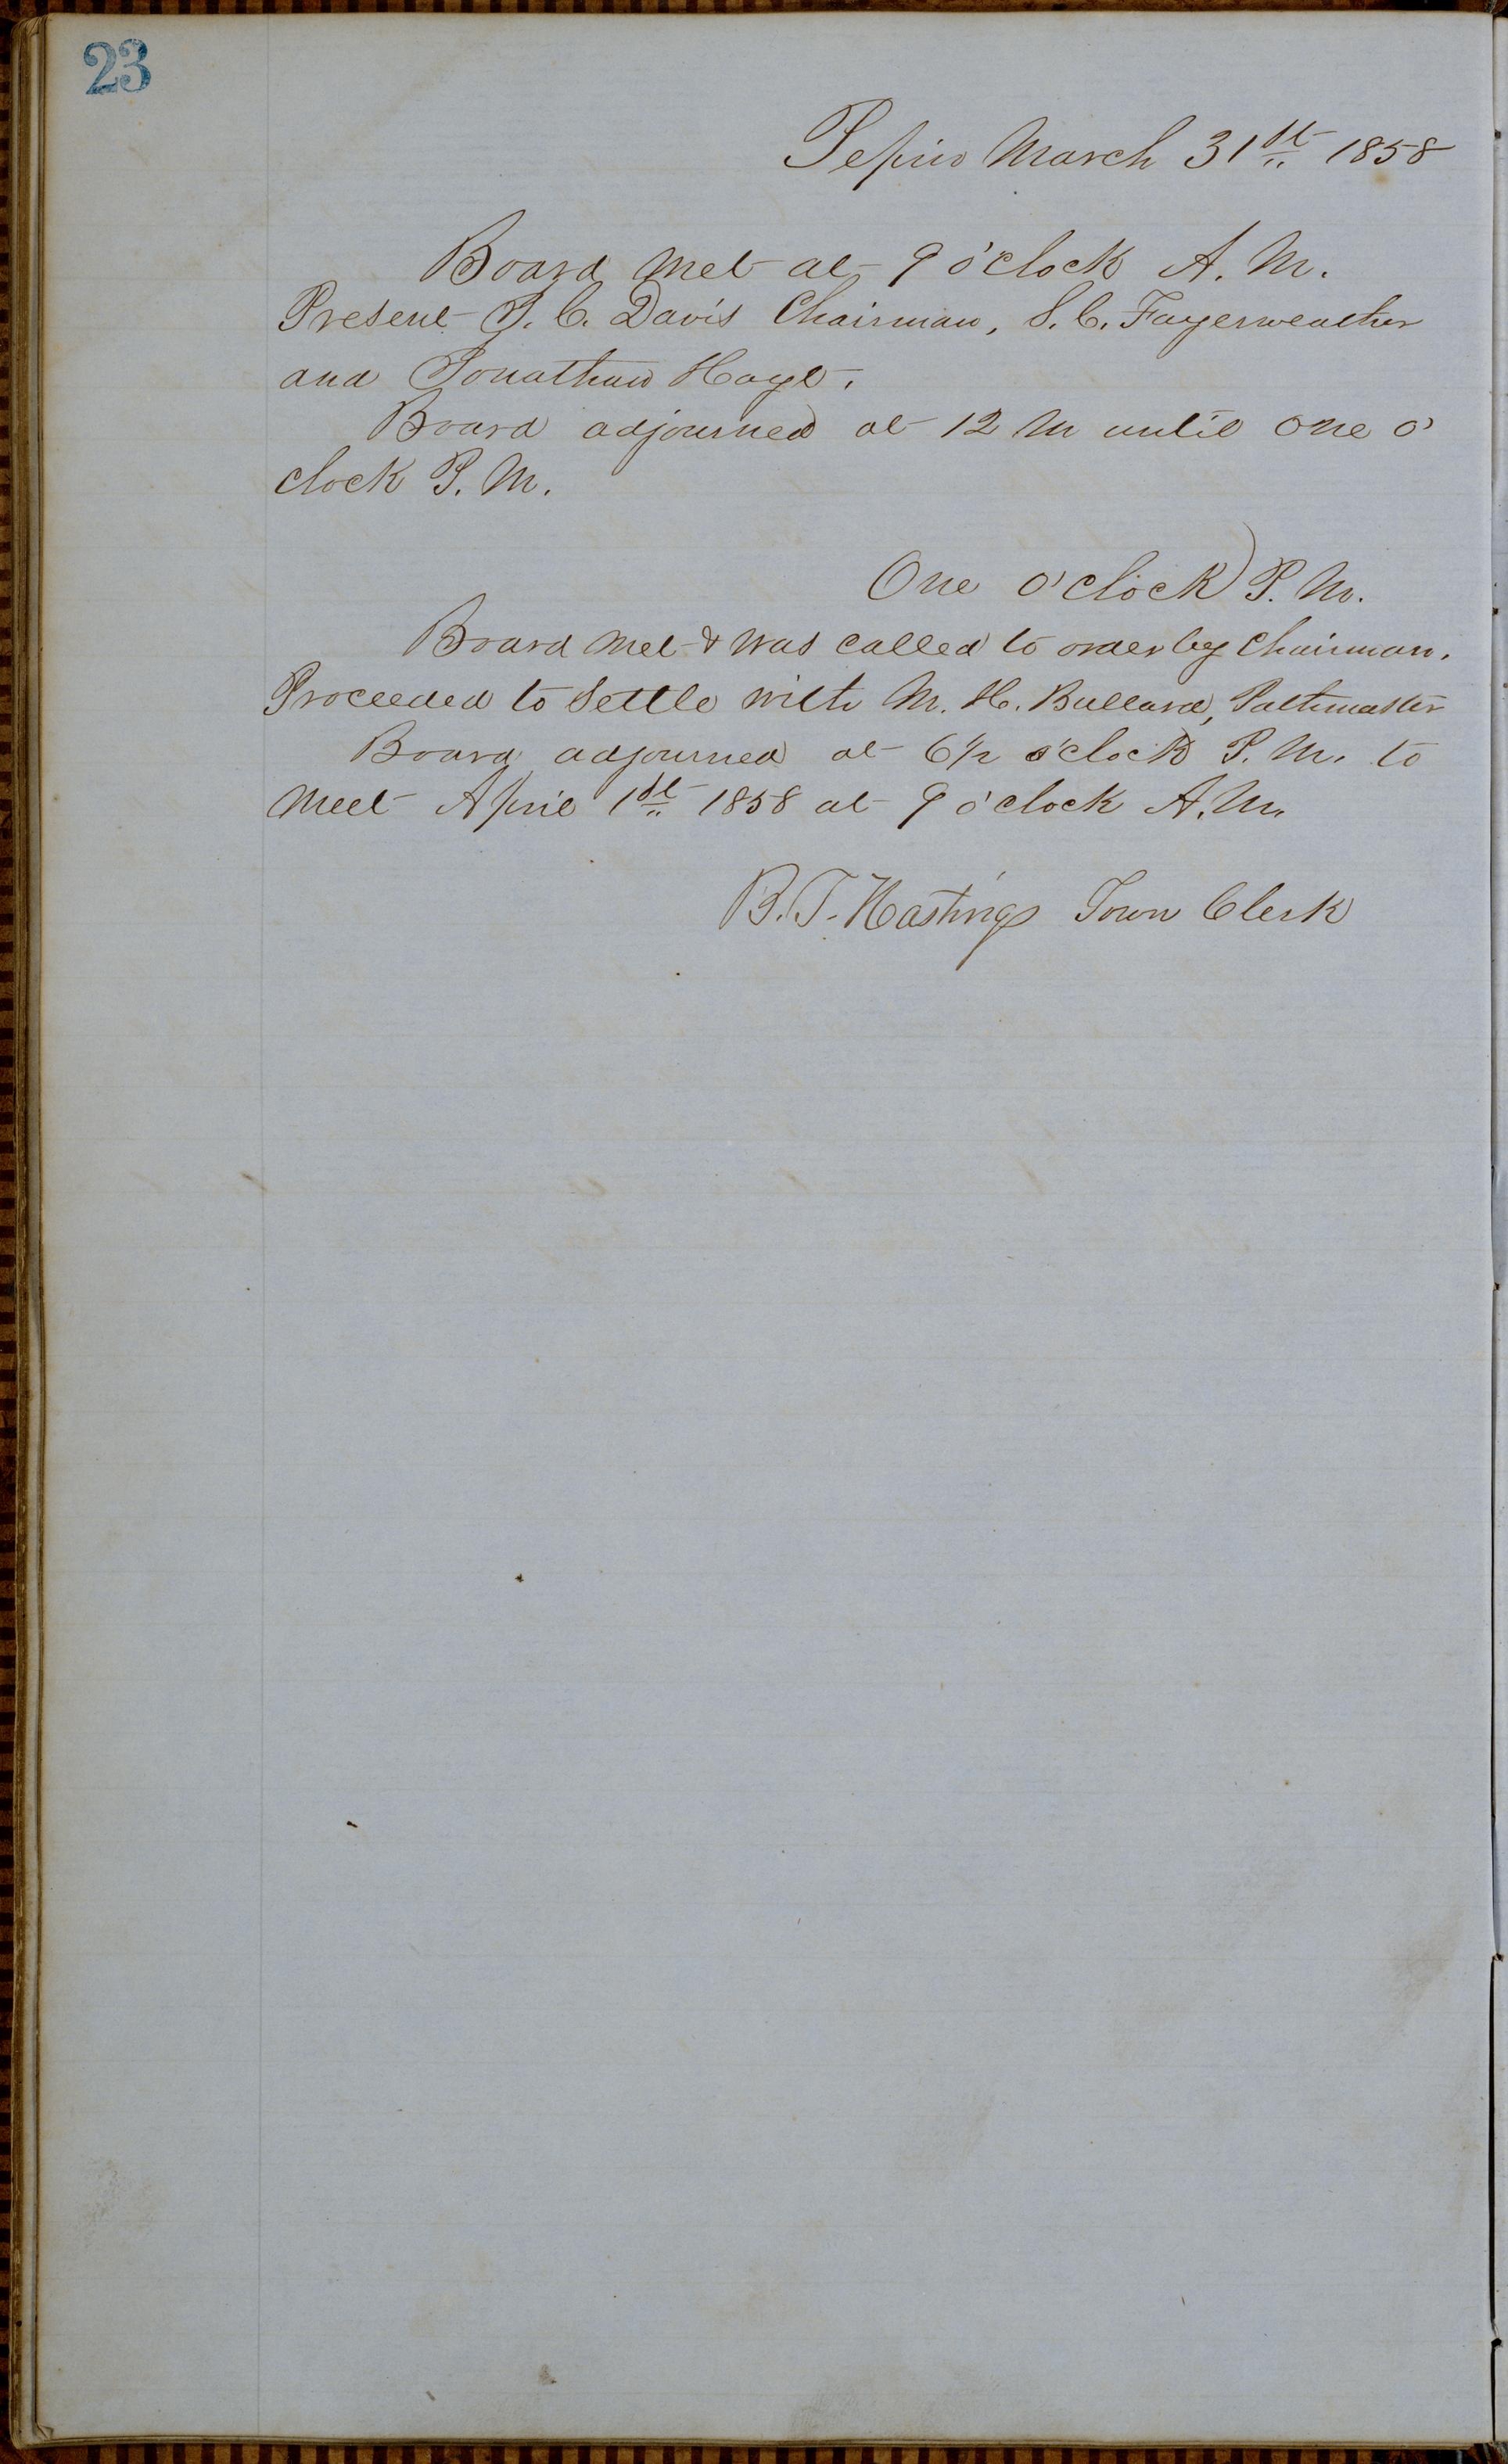 23
Pepin March 31st 1858
Board met at 9 o'clock A. M.
Present J. C. Davis Chairman, S. C. Fayerweather
and Jonathan Hoyt.
Board adjourned at 12 M until one o'
clock P. M.
One o'clock P. M.
Board met & was called to order by Chairman.
Proceeded to settle with M. H. Bullard, Pathmaster
Board adjourned at 6½ o'clock P. M. to
meet April 1st 1858 at 9 o'clock A. M.
B. T. Hastings Town Clerk